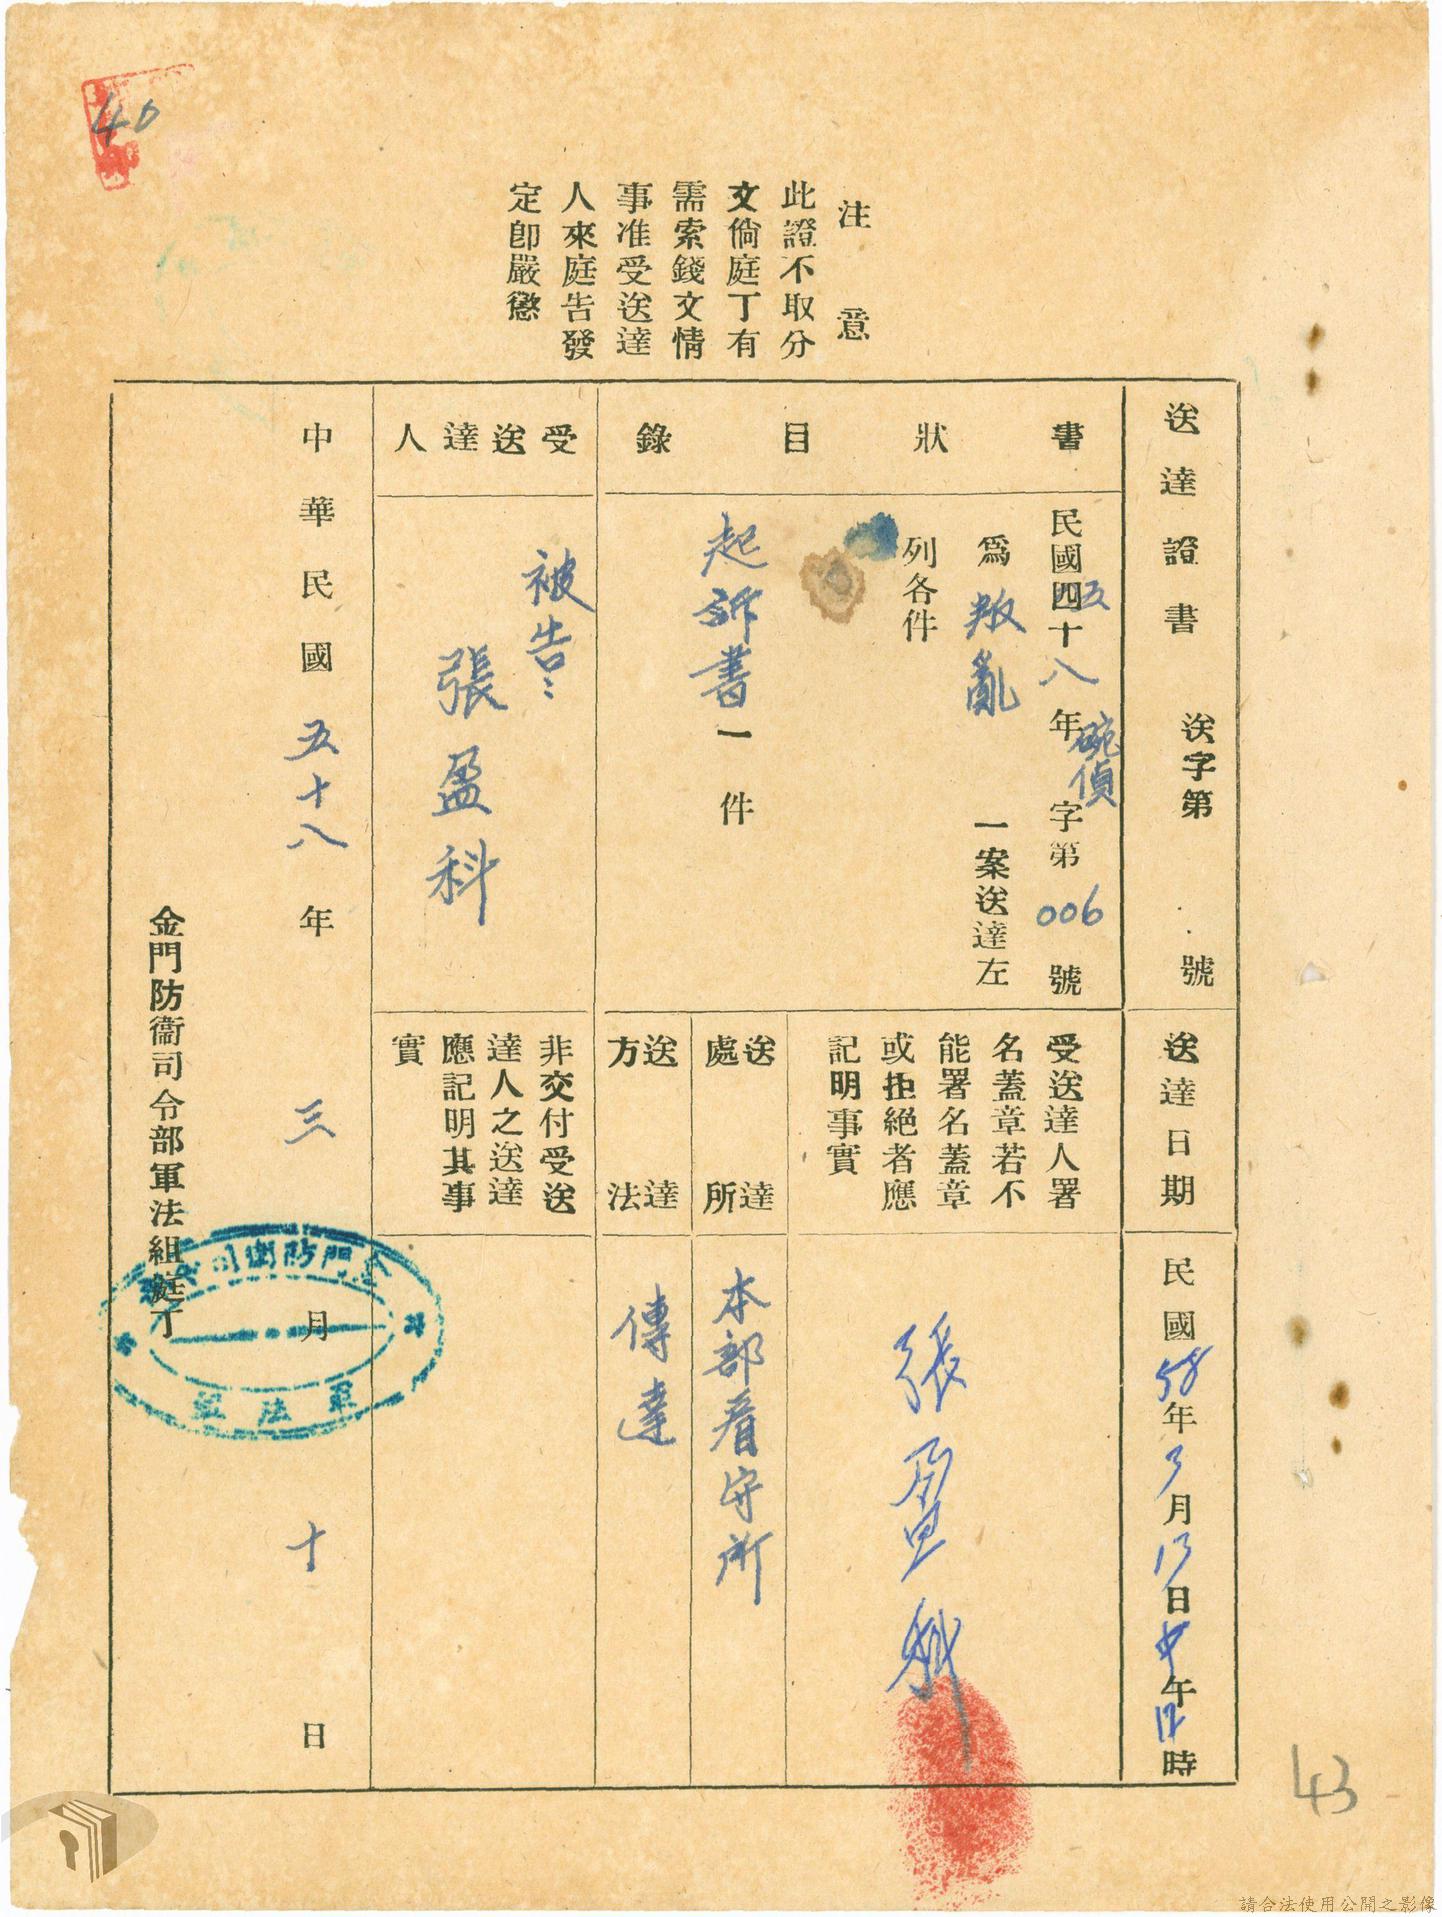 40
注意
此證不取分
文倘庭丁有
需索錢文情
事准受送達
人來庭告發
定卽嚴懲
送達證書 送字第 號
送達日期 民國58年3月13日中午12時
書狀目錄
民國五十八年碗偵字第006號
爲叛亂一案送達左
列各件
起訴書一件
受送達人署
名蓋章若不
能署名蓋章
或拒絕者應
記明事實
張盈科
送達處所 本部看守所
送達方法 傳達
受送達人
被告:
張盈科
非交付受送
達人之送達
應記明其事
實
中華民國五十八年三月十日
金門防衞司令部軍法組庭丁
金門防衛司令部
軍法組
43
請合法使用公開之影像